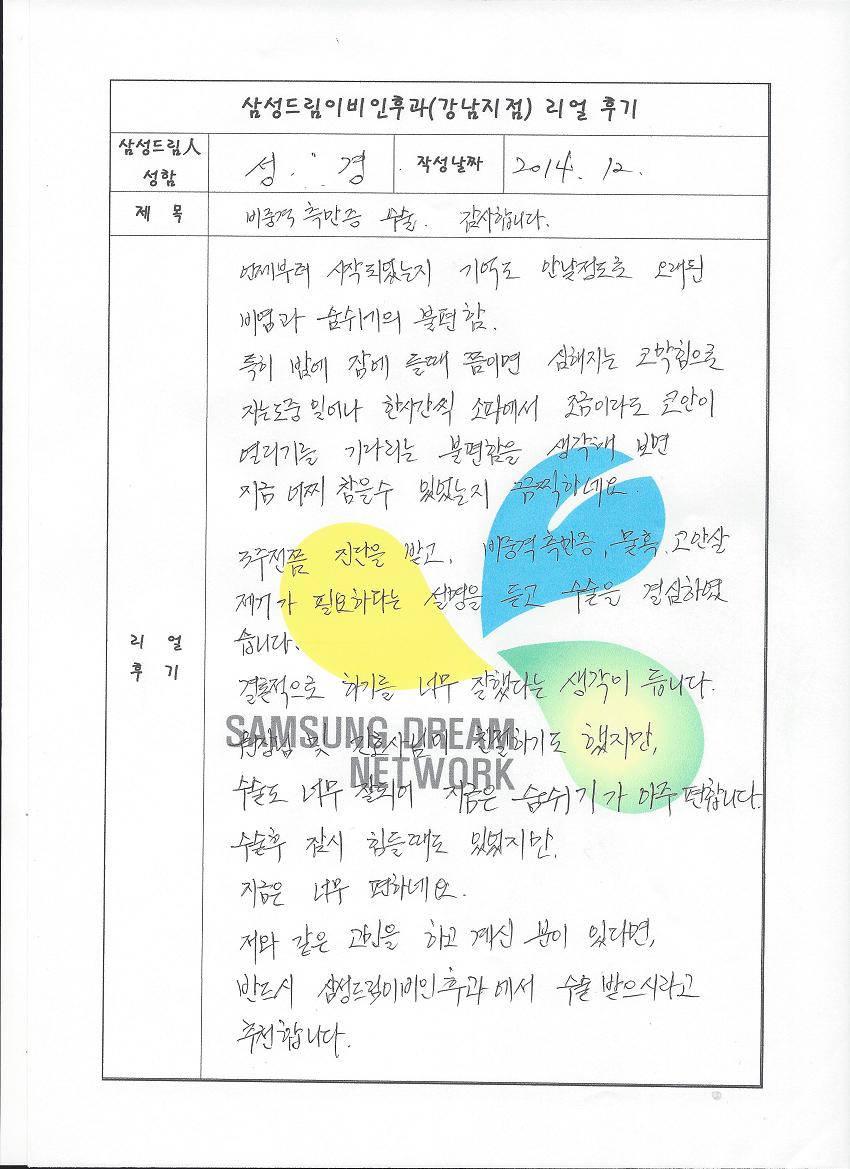 삼성드림이비인후과(강남지점) 리얼 후기
삼성드림人 성함
성 경
작성날짜
2014. 12.
제 목
비중격 측만증 수술. 감사합니다.
리 얼 후 기
언제부터 시작되었는지 기억도 안날정도로 오래된
비염과 숨쉬기의 불편함.
특히 밤에 잠에 들때 쯤이면 심해지는 코막힘으로
자는도중 일어나 한시간씩 소파에서 조금이라도 코안이
열리기를 기다리는 불편함을 생각해 보면
지금 어찌 참을수 있었는지 끔찍하네요.
3주전쯤 진단을 받고, 비중격측만증, 물혹, 코안살
제거가 필요하다는 설명을 듣고 수술을 결심하였
습니다.
결론적으로 하기를 너무 잘했다는 생각이 듭니다.
원장님 및 간호사님이 친절하기도 했지만,
수술도 너무 잘되어 지금은 숨쉬기가 아주 편합니다.
수술후 잠시 힘들때도 있었지만,
지금은 너무 편하네요.
저와 같은 고민을 하고 계신 분이 있다면,
반드시 삼성드림이비인후과에서 수술 받으시라고
추천합니다.
SAMSUNG DREAM
NETWORK